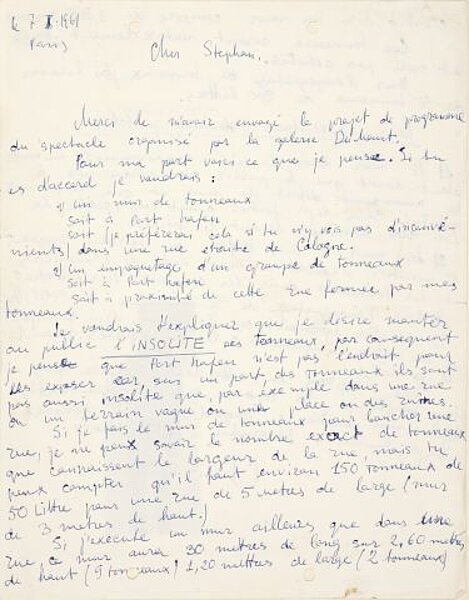 le 7 X. 1961
Paris)
Cher Stephan,
Merci de m'avoir envoyé le projet de programme
du spectacle organisé par la galerie
Pour ma part voici ce que je pense. Si tu
es d'accord je voudrais :
1) un mur de tonneaux
soit à Port hafen
soit (je préférerai cela si tu n'y vois pas d'inconvé-
nients) dans une rue étroite de Cologne.
2) un empaquetage d'un groupe de tonneaux
soit à Port hafen
soit à proximité de cette rue fermée par mes
tonneaux.
Je voudrais t'expliquer que je désire montrer
au public l'INSOLITE des tonneaux, par conséquent
je pense que Port hafen n'est pas l'endroit pour
les exposer car sur un port, des tonneaux ils sont
pas aussi insolite que, par exemple dans une rue
ou un terrain vague ou une place ou des ruines.
Si je fais le mur de tonneaux pour boucher une
rue, je ne peux savoir le nombre exact de tonneaux
que connaissent la largeur de la rue, mais tu
peux compter qu'il faut environ 150 tonneaux de
50 Littre pour une rue de 5 metres de large (mur
de 3 metres de haut.)
Si j'execute un mur ailleurs que dans une
rue, ce mur aura 30 mètres de long sur 2,60 metres
de haut (9 tonneaux) 1,20 mettres de large (2 tonneaux)